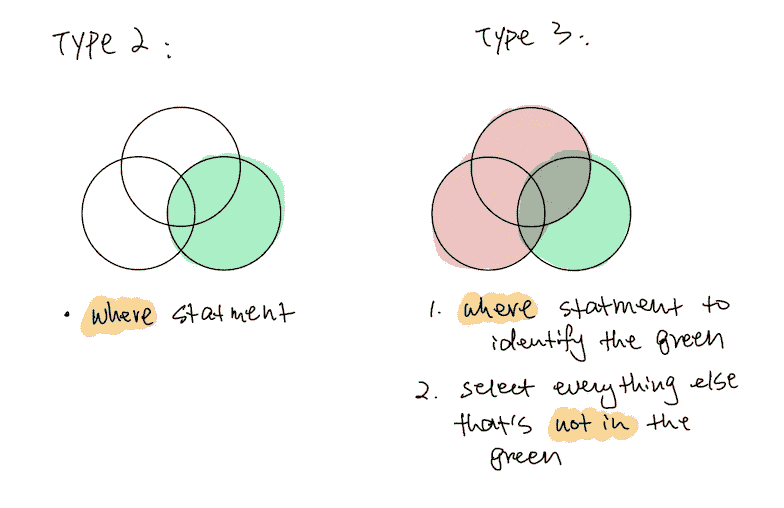 Type 2:
• where statment
Type 3:
1. where statment to
identify the green
2. select everything else
that's not in the
green